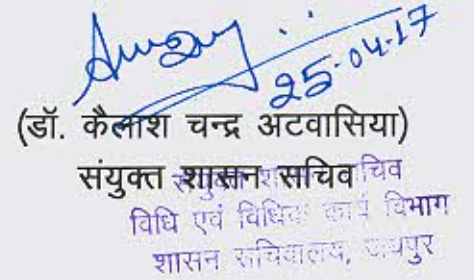 25-04-17
(डॉ. कैलाश चन्द्र अटवासिया)
संयुक्त शासन सचिव
संयुक्त शासन सचिव
विधि एवं विधिक कार्य विभाग
शासन सचिवालय, जयपुर